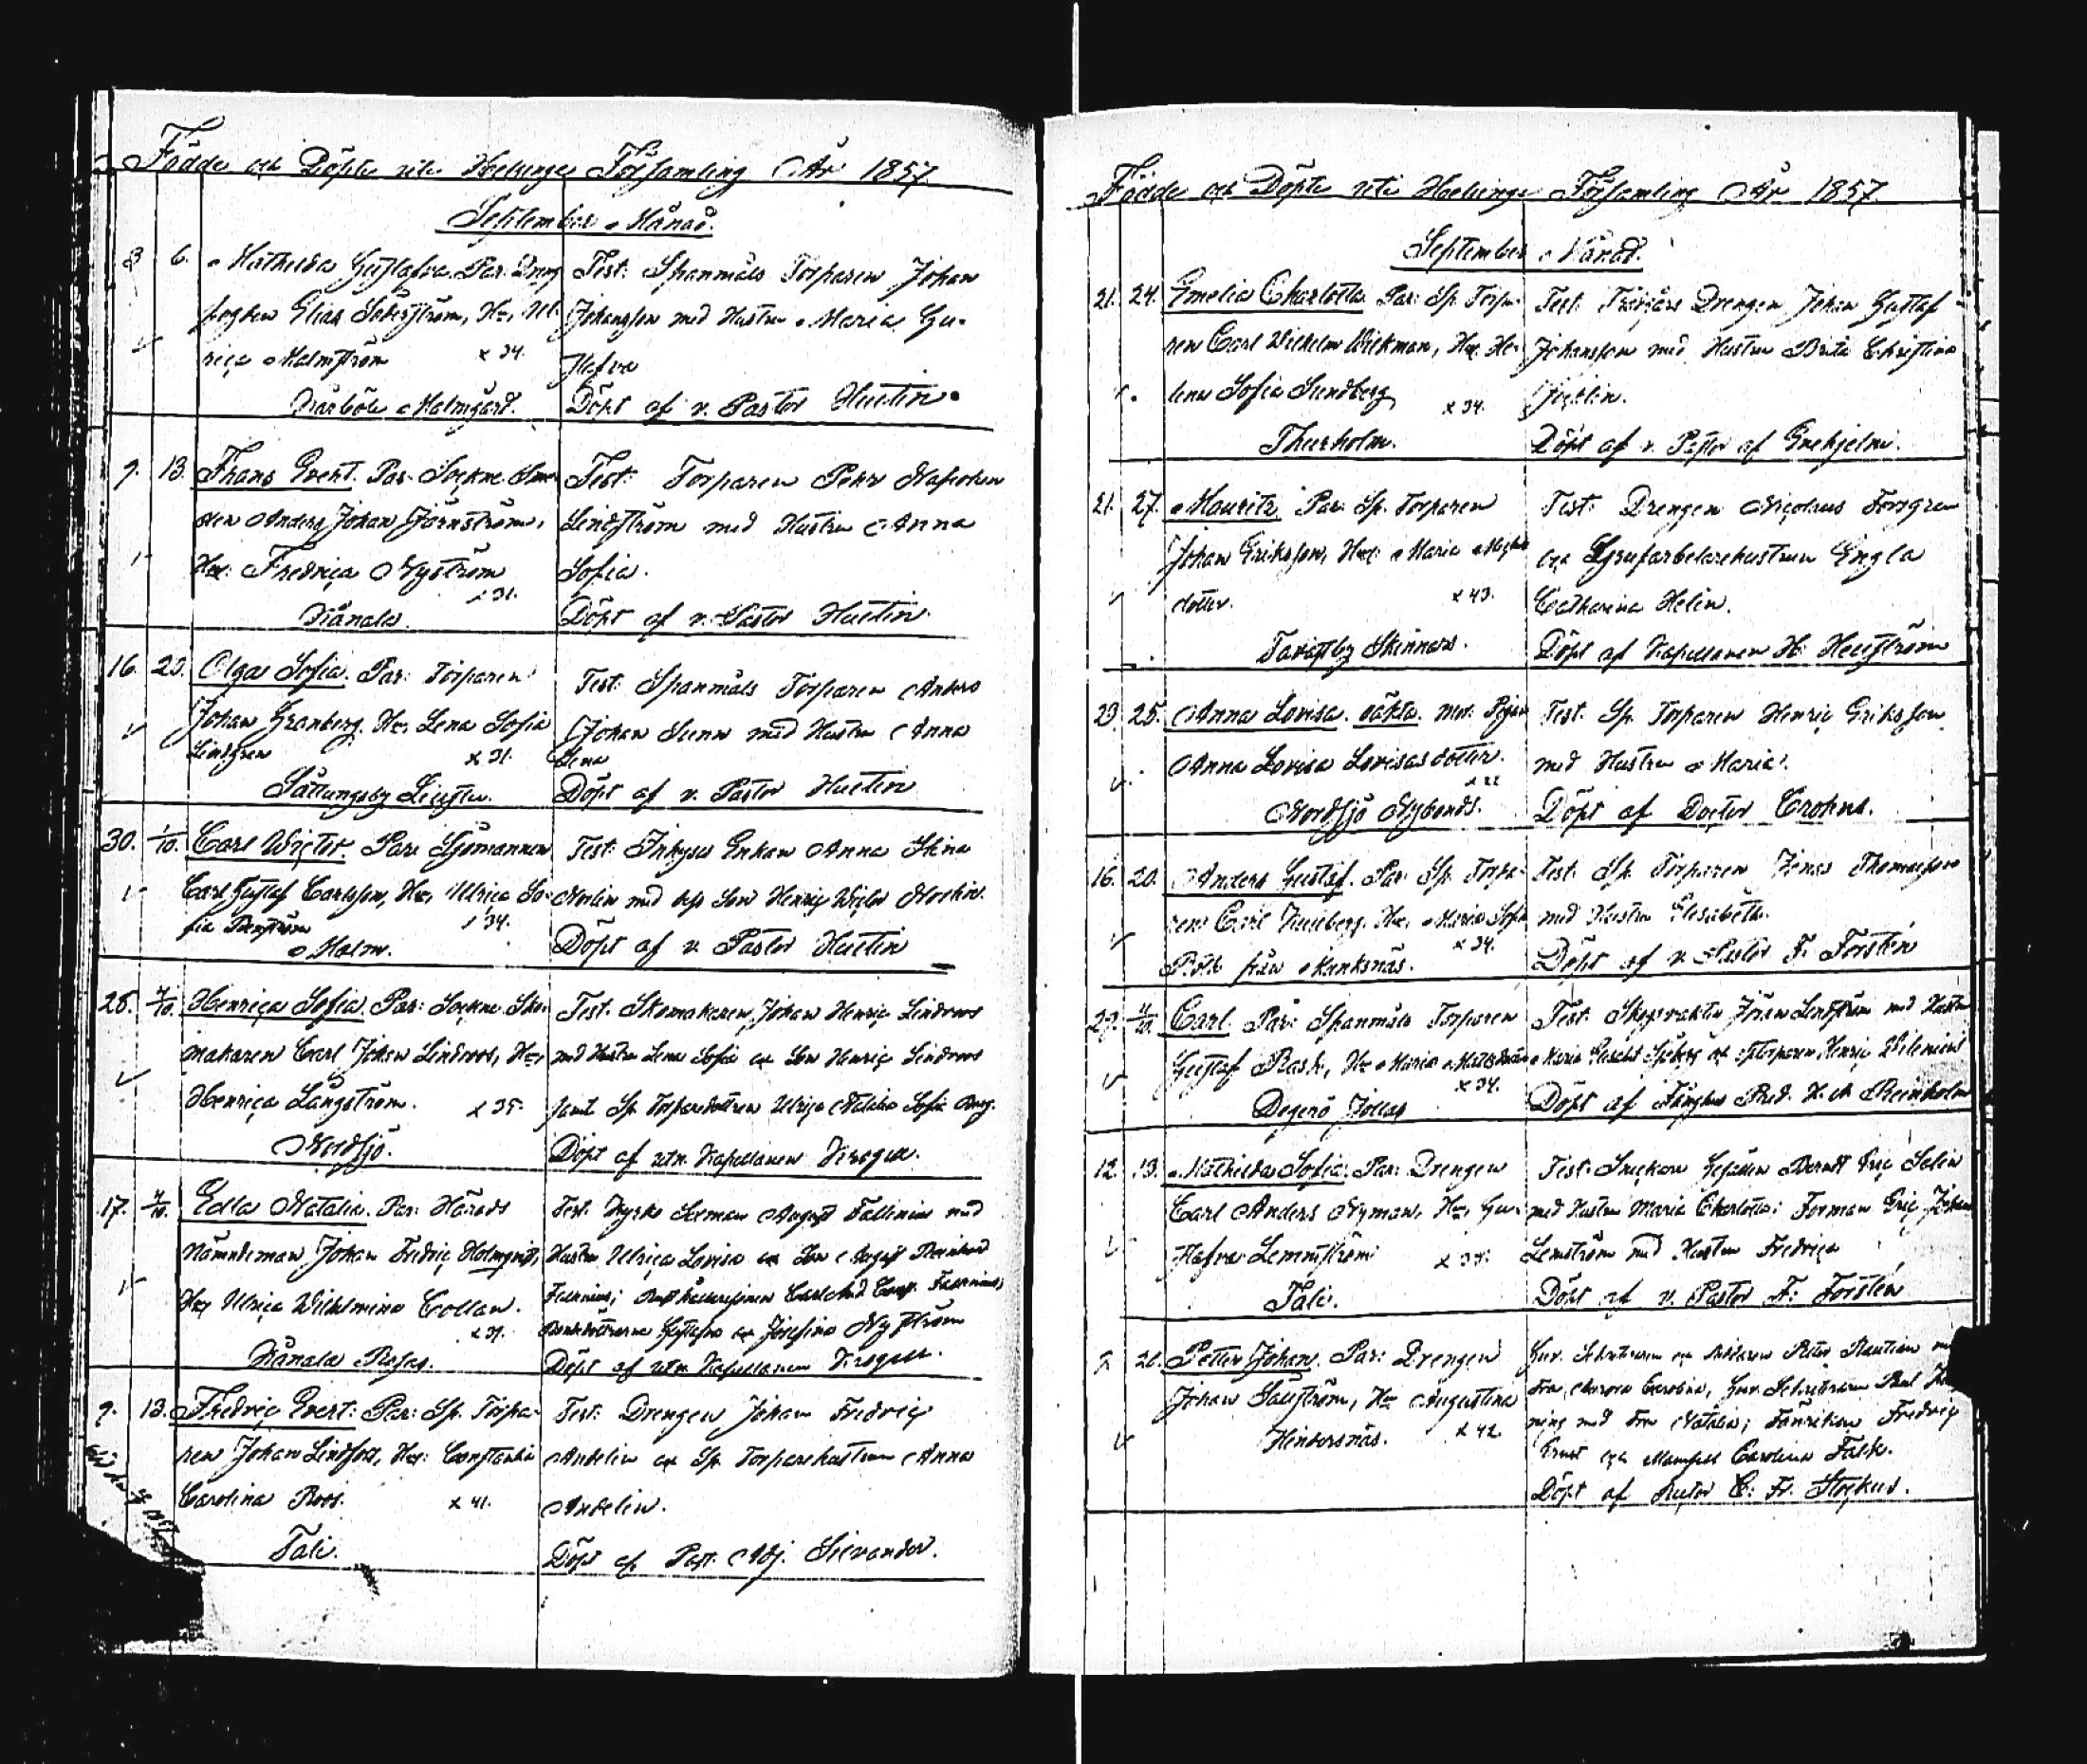 Födde och Döpte uti Helsinge Församling År 1857.
September Månad.
3 6. Mathilda Gustafva. Par: Dreng
fogden Elias Söderström, Hu: Ul-
rica Malmström x 34.
Kårböle Malmgård.
Test: Spanmåls Torparen Johan
Johansson med Hustru Maria Gu-
stafva
Döpt af v. Pastor
9. 13. Frans Evert. Par: Sockne Sme-
den Anders Johan Stjärnström,
Hu: Fredrica Nyström
x 31.
Kånala.
Test: Torparen Pehr Napoleon
Lindström med Hustru Anna
Sofia.
Döpt af v. Pastor
16. 20. Olga Sofia. Par: Torparen
Johan Granberg, Hu: Lena Sofia
Lindgren x 31.
Sottungsby
Test: Spanmåls Torparen Anders
Johan Sunn med Hustru Anna
Lena
Döpt af v. Pastor
30. 1/10. Carl Wictor. Par: Sjömannen
Carl Gustaf Carlsson, Hu: Ulrica So-
fia x 34.
Malm.
Test: Inhyses Enkan Anna Stina
Norlin med dess Son Henric Wictor Norlin.
Döpt af v. Pastor
25. 4/10. Henrica Sofia. Par: Sockne Sko-
makaren Carl Johan Lindroos, Hu:
Henrica Långström. x 35.
Nordsjö.
Test: Skomakaren Johan Henric Lindroos
med Hustru Lena Sofia och Son Henric Lindroos
samt Sp. Torparedottren Ulrica Natalia Sofia Berg.
Döpt af utn. Kapellanen Krogell.
17. 4/10. Edla Natalia. Par: Härads
Nämndeman Johan Fredric Holmqvist,
Hu: Ulrica Wilhelmina Collan.
x 37.
Kånala Rosas.
Test: Kyrko Sexman August Fallenius med
Hustru Ulrica Lovisa och Son August
Fallenius;
Bondedöttrarne Gustafva och Josefina Nyström
Döpt af utn. Kapellanen Krogell.
9. 13. Fredric Evert: Par: Sp. Torpa-
ren Johan Lindfors, Hu: Constantia
Carolina Roos. x 41.
Tali.
Test: Drengen Johan Fredric
Andelin och Sp. Torparehustrun Anna
Andelin.
Döpt af Past. Adj. Silvander.
Födde och Döpte uti Helsinge Församling År 1857.
September Månad.
21. 24. Emelia Charlotta. Par: Sp. Torpa-
ren Carl Wilhelm Wickman, Hu: He-
lena Sofia Sundberg x 34.
Thurholm.
Test: Drengen Johan Gustaf
Johansson med Hustru Brita Christina
Döpt af v. Pastor af Enehjelm.
21. 27. Mauritz. Par: Sp. Torparen
Johan Eriksson, Hu: Maria
dotter. x 43.
Tavastby Skinnars.
Test: Drengen Nicolaus Forsgren
och Grufarbetarehustrun Engla
Catharina Helin.
Döpt af Kapellanen H. Hellström
23. 25. Anna Lovisa. oäkta. Mod: Pigan
Anna Lovisa Lovisasdotter.
x 22
Nordsjö Nybonds.
Test: Sp. Torparen Henric Eriksson
med Hustru Maria.
Döpt af Doctor Crohns.
16. 20. Anders Gustaf. Par: Sp. Torpa-
ren Carl Hu: Maria Sofia
x 34.
från Munksnäs.
Test: Sp. Torparen Jonas Thomasson
med Hustru Elisabeth.
Döpt af v. Pastor F. Forstén
29. 4/10. Carl. Par: Spanmåls Torparen
Gustaf Rask, Hu: Maria
x 34.
Degerö Jollas
Test: Skeppredaktn Johan Lindström med Hustru
Maria Elisabet Sjöberg och Torparen Henric
Döpt af Fängelse Pred. Reinholm
12. 13. Mathilda Sofia. Par: Drengen
Carl Anders Nyman, Hu: Gu-
stafva Lemmström x 37.
Tali.
Test: Snickare Gesällen Berndt Eric Selin
med Hustru Maria Charlotta; Forman Eric Johan
Lemström med Hustru Fredrica
Döpt af v. Pastor F. Forstén
2. 26. Petter Johan. Par: Drengen
Johan Sallström, Hu: Augustina
x 42.
Hindersnäs.
Guv. Sekreteraren och Riddaren
Fru Aurora Carolina, Guv. Sekreteraren Paul
med Fru Natalia; Fänriken Fredric
Ernst och Mamsell Carolina Falck.
Döpt af Rector C. Fr. Stockus.